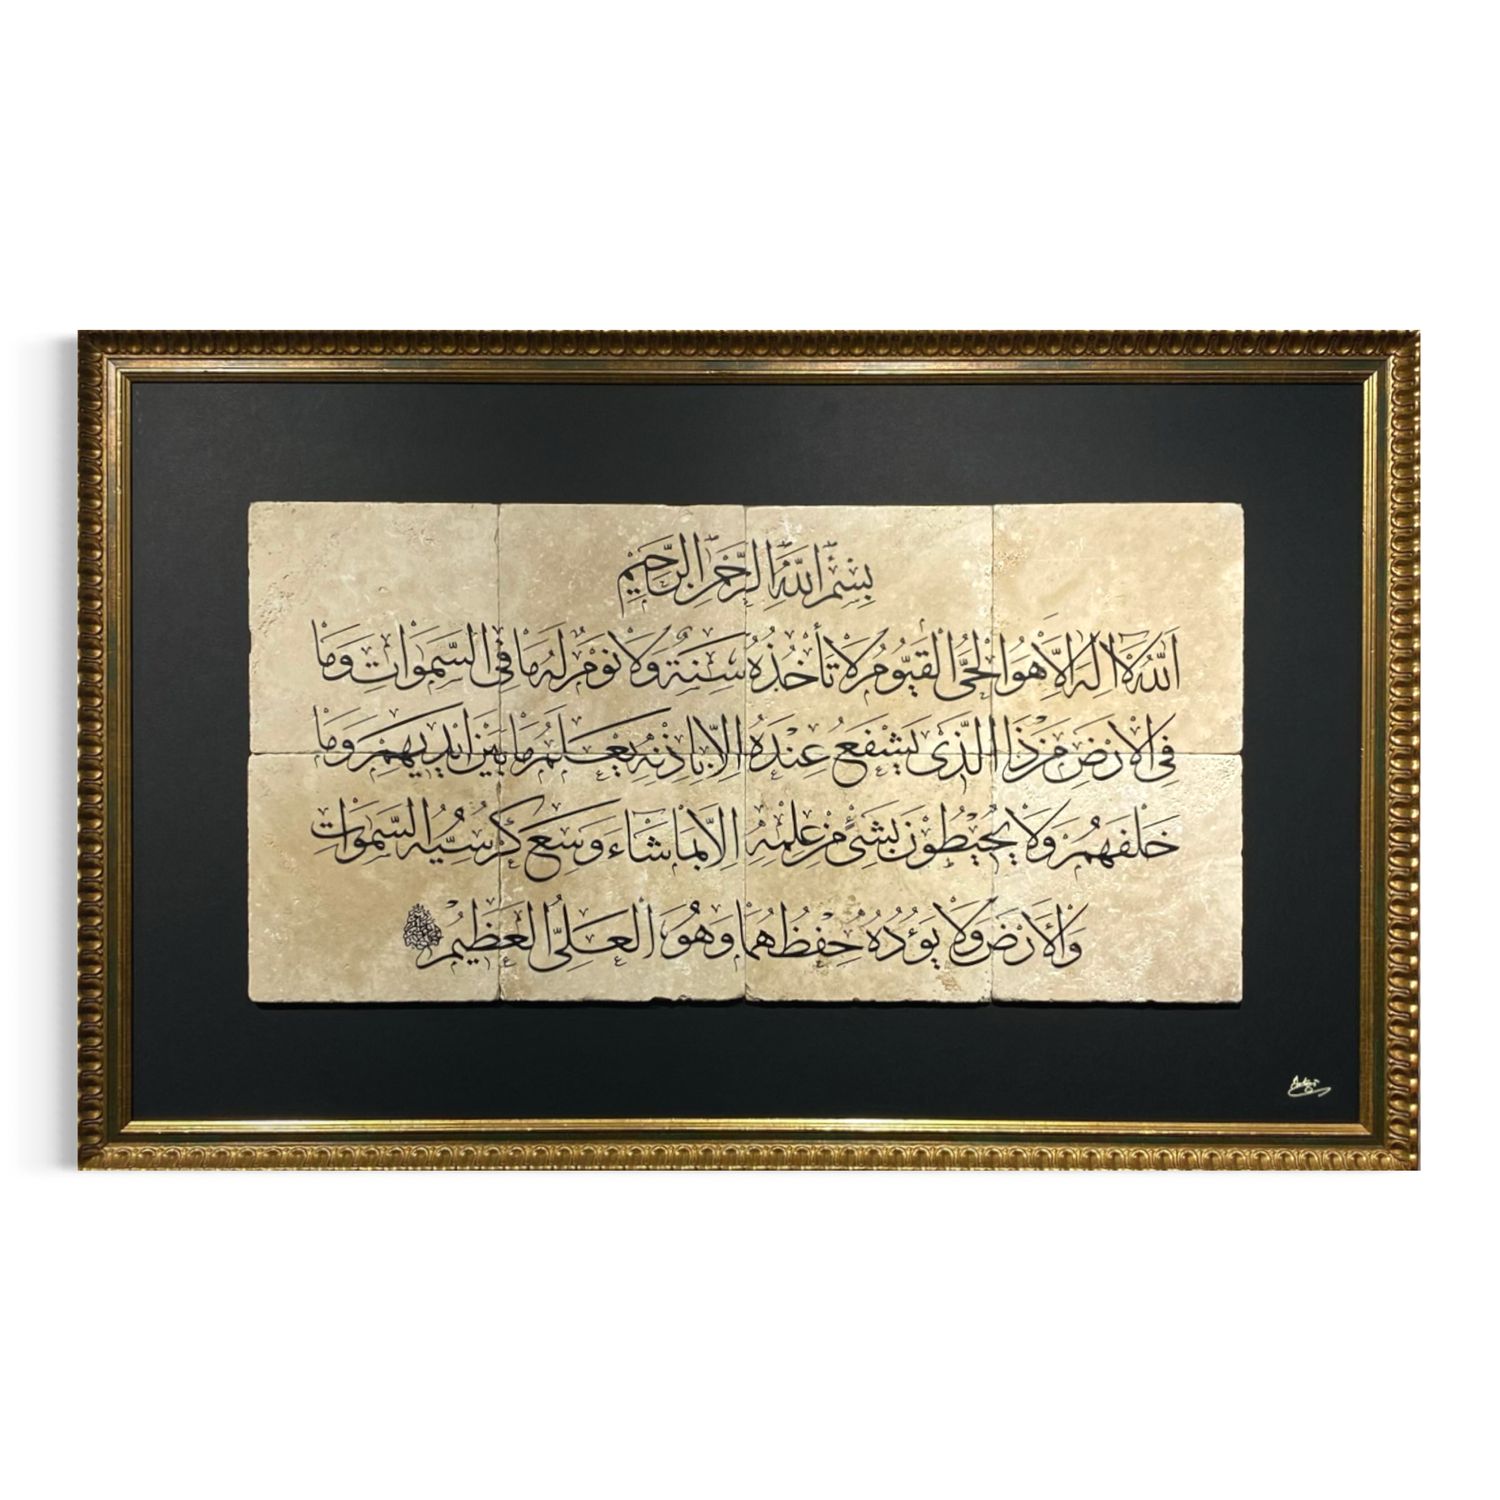 بِسْمِ اللهِ الرَّحْمٰنِ الرَّحِيمِ
اَللهُ لَا اِلٰهَ اِلَّا هُوَ الْحَيُّ الْقَيُّومُ لَا تَأْخُذُهُ سِنَةٌ وَلَا نَوْمٌ لَهُ مَا فِي السَّمٰوَاتِ وَمَا
فِي الْاَرْضِ مَنْ ذَا الَّذِي يَشْفَعُ عِنْدَهُ اِلَّا بِاِذْنِهِ يَعْلَمُ مَا بَيْنَ اَيْدِيهِمْ وَمَا
خَلْفَهُمْ وَلَا يُحِيطُونَ بِشَيْءٍ مِنْ عِلْمِهِ اِلَّا بِمَا شَاءَ وَسِعَ كُرْسِيُّهُ السَّمٰوَاتِ
وَالْاَرْضَ وَلَا يَؤُدُهُ حِفْظُهُمَا وَهُوَ الْعَلِيُّ الْعَظِيمُ